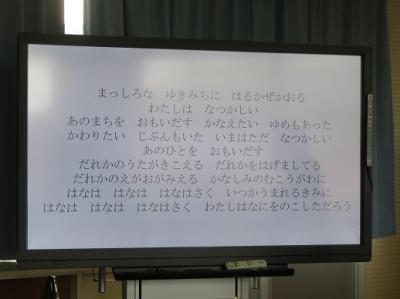 まっしろな　ゆきみちに　はるかぜかおる
わたしは　なつかしい
あのまちを　おもいだす　かなえたい　ゆめもあった
かわりたい　じぶんもいた　いまはただ　なつかしい
あのひとを　おもいだす
だれかのうたがきこえる　だれかをはげましてる
だれかのえがおがみえる　かなしみのむこうがわに
はなは　はなは　はなはさく　いつかうまれるきみに
はなは　はなは　はなはさく　わたしはなにをのこしただろう